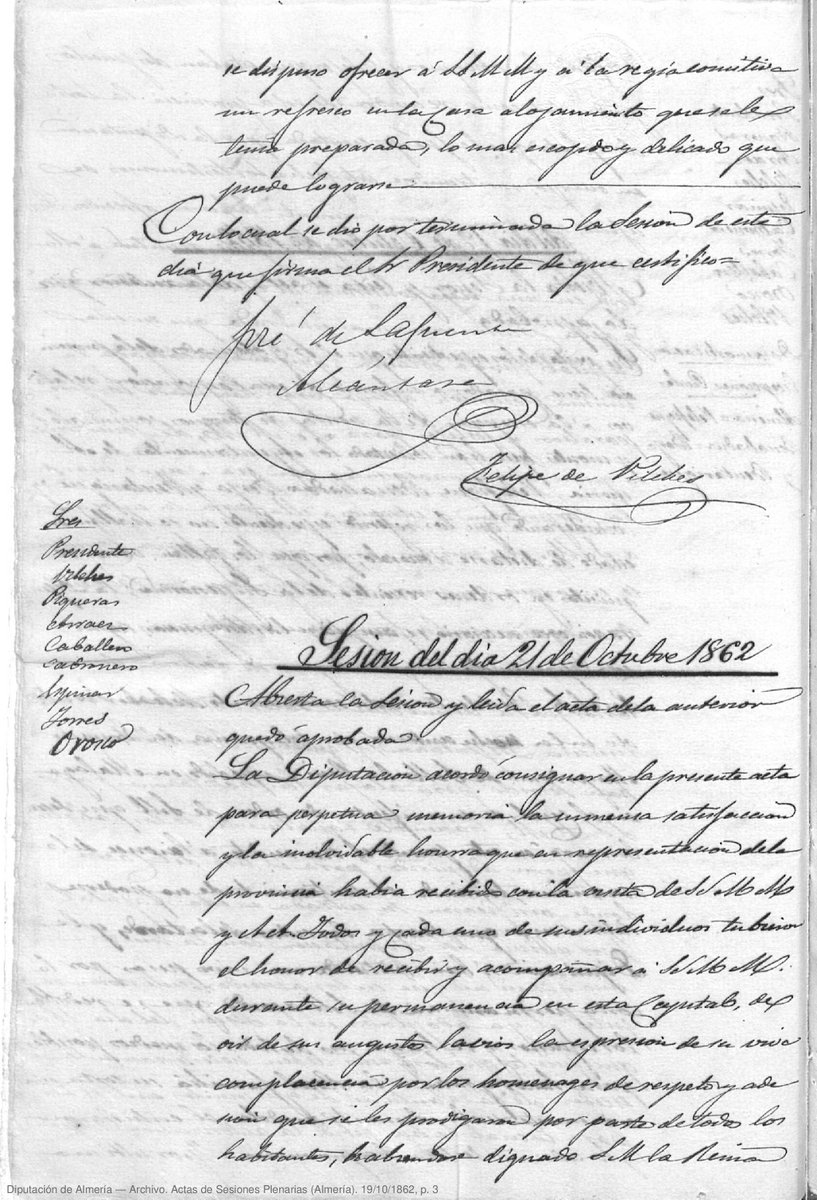 se dispuso ofrecer á SS M M y á la regia comitiva
un refresco en la Casa alojamiento que se le
tenia preparada, lo mas escogido y delicado que
puede lograrse
Con lo cual se dio por terminada la Sesion de este
dia que firma el Sr Presidente de que certifico=
José de Lafuente
Alcántara
Felipe de Vilches
Sres
Presidente
Vilches
Piqueras
Arraez
Caballero
Espinar
Torres
Orozco
Sesion del dia 21 de Octubre 1862
Abierta la Sesion y leida el acta de la anterior
quedó aprobada
La Diputacion acordó consignar en la presente acta
para perpetua memoria la inmensa satisfaccion
y la inolvidable honra que en representacion de la
provincia habia recibido con la visita de SS M M
y AA. Todos y cada uno de sus individuos tubieron
el honor de recibir y acompañar á SS M M.
durante su permanencia en esta Capital, de
oir de sus augustos labios la espresion de su viva
complacencia por los homenages de respeto y ade
sion que se les prodigaron por parte de todos los
habitantes, habiendose dignado S M la Reina
Diputación de Almería — Archivo. Actas de Sesiones Plenarias (Almería). 19/10/1862, p. 3